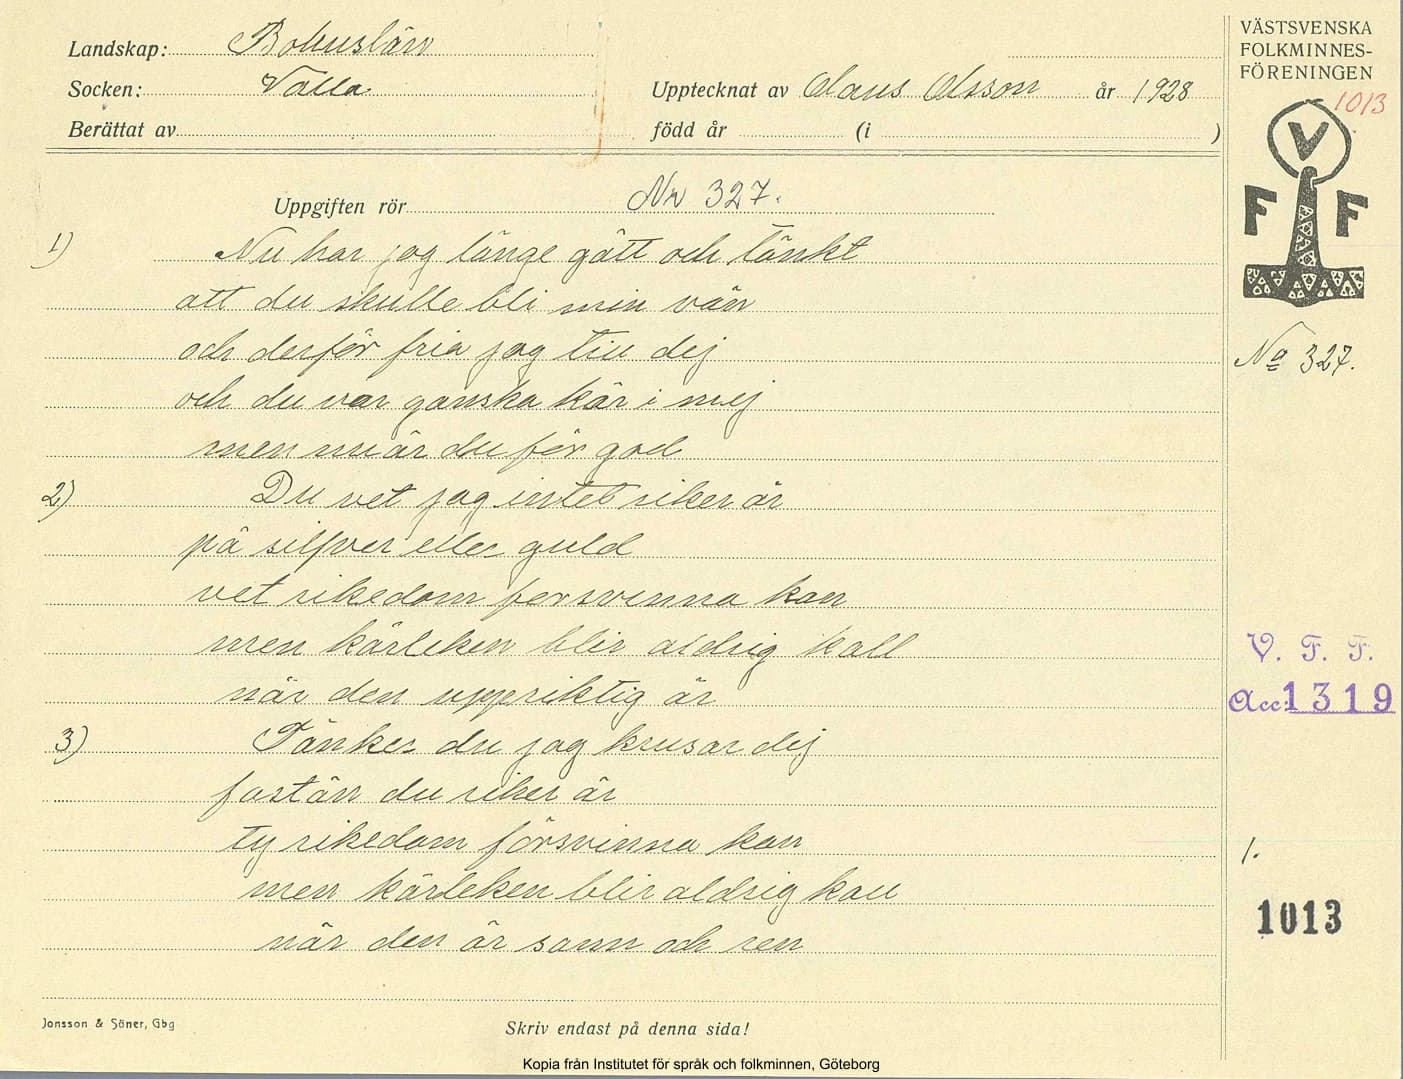 Landskap: Bohuslän
Socken: Valla
Upptecknat av Claus Olsson år 1928
Berättat av
född år (i )
VÄSTSVENSKA
FOLKMINNES-
FÖRENINGEN
1013
V
F F
Uppgiften rör Nr 327.
1) Nu har jag länge gått och tänkt
att du skulle bli min vän
och derför fria jag till dej
och du var ganska kär i mej
men nu är du för god
2) Du vet jag intet riker är
på silfver eller guld
vet rikedom forsvinna kan
men kärleken blir aldrig kall
när den uppriktig är
3) Tänker du jag krusar dej
fastän du riker är
ty rikedom försvinna kan
men kärleken blir aldrig kall
när den är sann och ren
No 327.
V. F. F.
Acc: 1319
1.
1013
Jonsson & Söner, Gbg
Skriv endast på denna sida!
Kopia från Institutet för språk och folkminnen, Göteborg